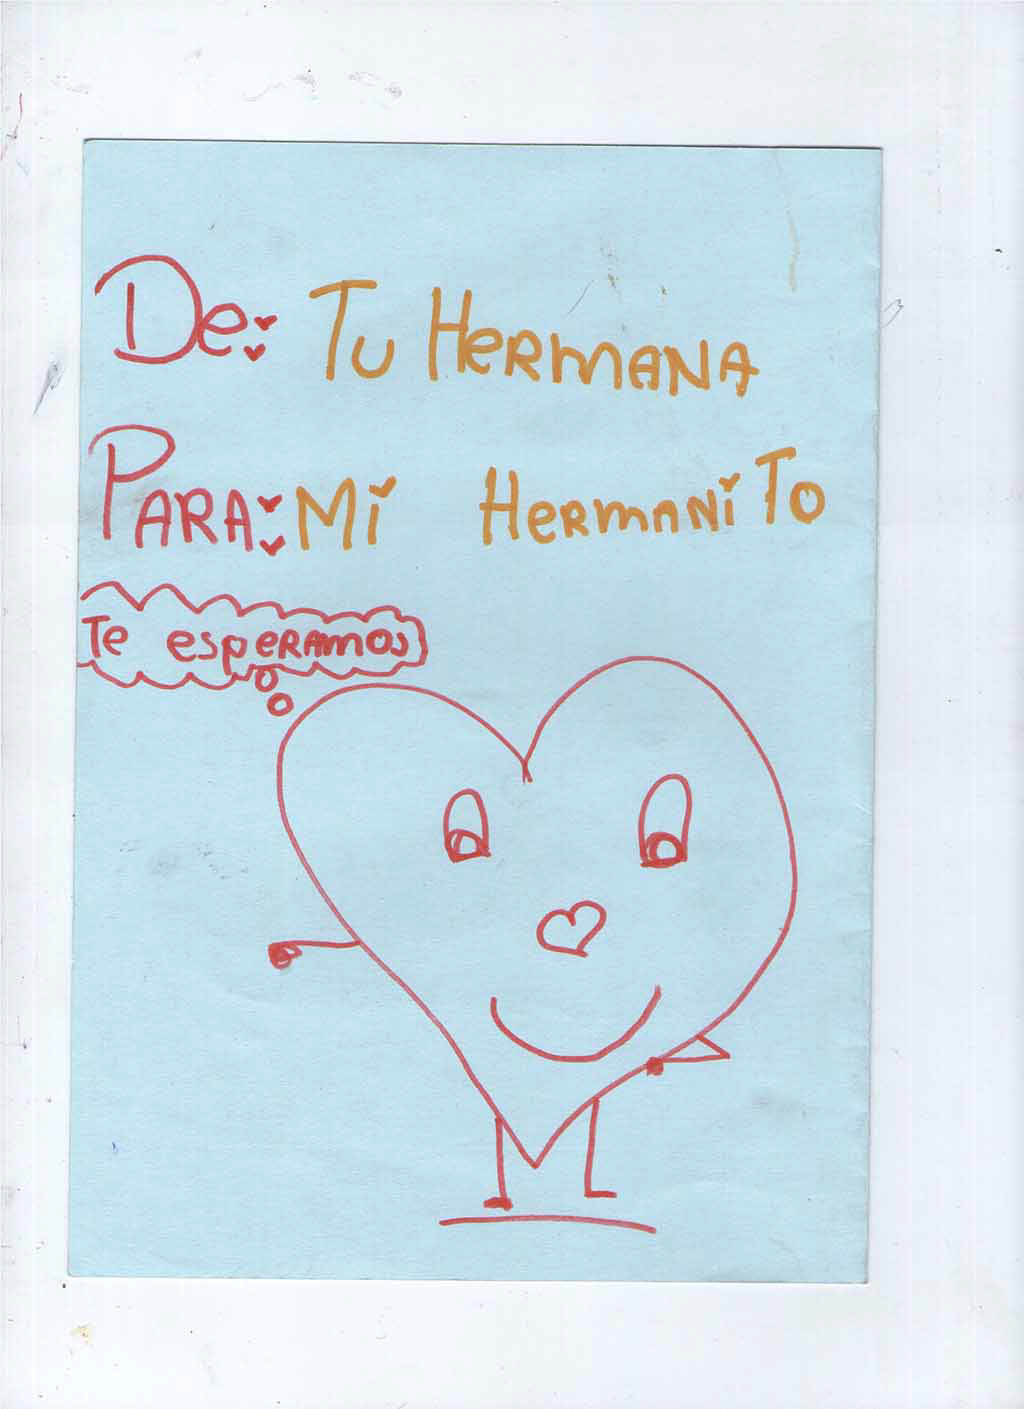 De: Tu HermANA
PARA: Mi HermANiTo
Te espeRAmos